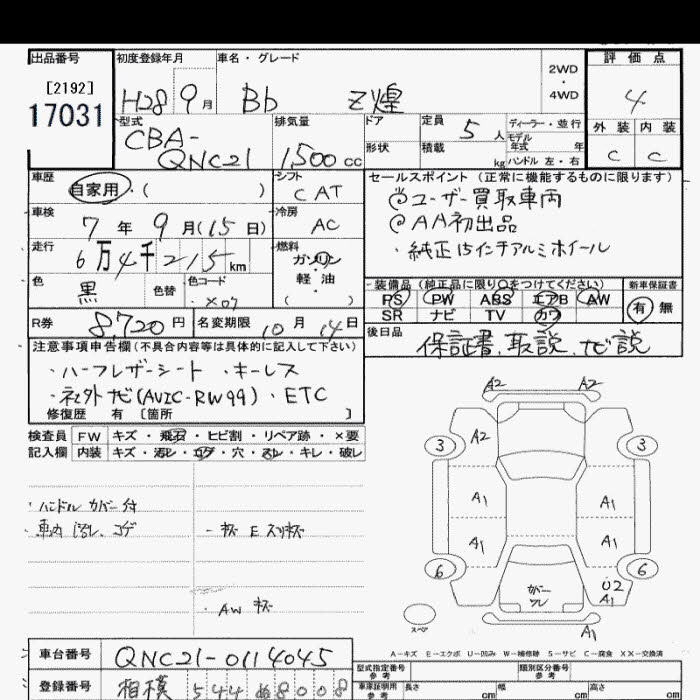 出品番号
[2192]
17031
初度登録年月
H28 9月
車名・グレード
Bb Z煌
2WD
・
4WD
評価点
4
外装 内装
C C
型式
CBA-
QNC21
排気量
1500 cc
ドア
形状
定員 5人
積載 kg
ディーラー・並行
モデル年式 年
ハンドル 左・右
車歴
自家用・( )
シフト
C AT
車検
7年 9月(15日)
冷房
AC
走行
6万4千215km
燃料
ガソリン
軽油
( )
色
黒
色替
色コード
X07
R券 8,720円
名変期限 10月 14日
セールスポイント(正常に機能するものに限ります)
@ユーザー買取車両
@AA初出品
・純正15インチアルミホイール
装備品(純正品に限り○をつけてください)
新車保証書
PS PW ABS エアB AW
SR ナビ TV カワ
有 無
後日品
保証書、取説、ナビ説
注意事項申告欄(不具合内容等は具体的に記入して下さい)
・ハーフレザーシート ・キーレス
・社外ナビ(AVIC-RW99) ・ETC
修復歴 有 [箇所 ]
検査員
記入欄
FW キズ・飛石・ヒビ割・リペア跡・×要
内装 キズ・汚レ・コゲ・穴・スレ・キレ・破レ
・ハンドルカバー付
・車内 汚レ、コゲ
・キズ E スリキズ
・AW キズ
A2 A2
3 A2 3
A1 A1
A1 A1
6 6
カバー
ワレ
U2
A1
スペア
A1
A-キズ E-エクボ U-凹み W-補修跡 S-サビ C-腐食 XX-交換済
車台番号 QNC21-0114045
登録番号 相模 544 ぬ8008
型式指定番号
参考
類別区分番号
参考
車庫証明用
参考
長さ cm 幅 cm 高さ cm